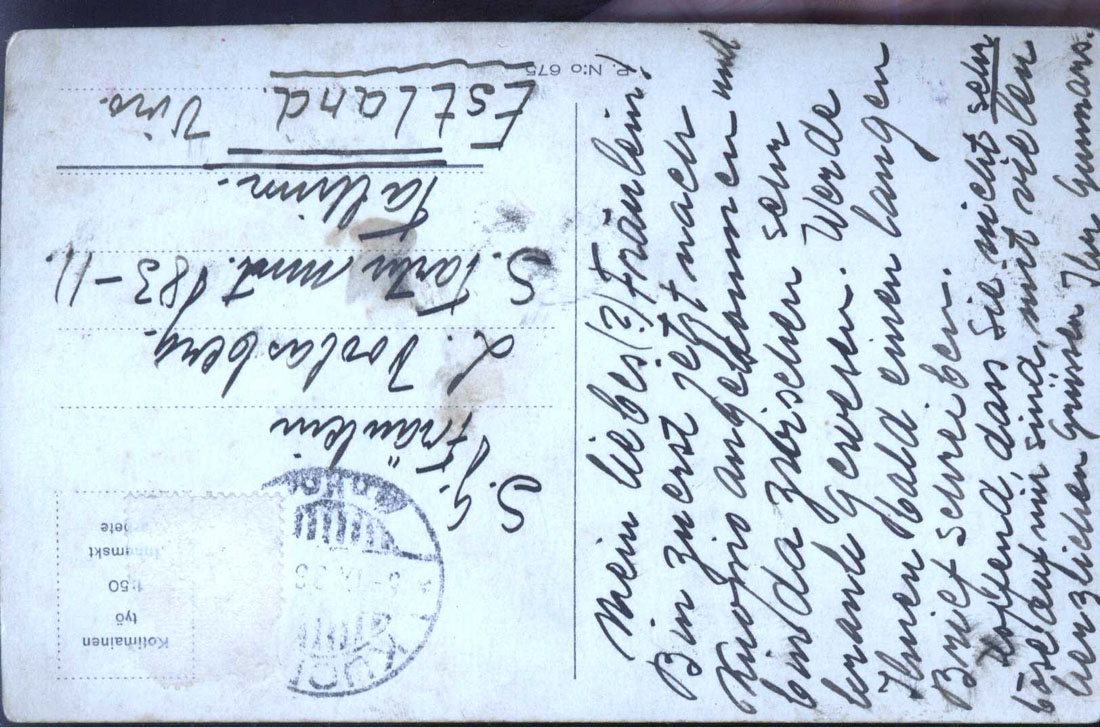 P. N:o 675
Mein liebes(?) Fräulein!
Bin zuerst jetzt nach
Kuopio angekommen und
bin da zwischen sehr
krank gewesen. Werde
Ihnen bald einen langen
Brief schreiben.
Hoffend, dass Sie nicht sehr
böse auf mir sind, mit vielen
herzlichen Grüssen Ihr
S. G. Fräulein
L.
S. Tartu mnt. 183-11.
Tallinn.
Estland.
Viro.
Kotimainen
työ
1:50
Inhemskt
arbete